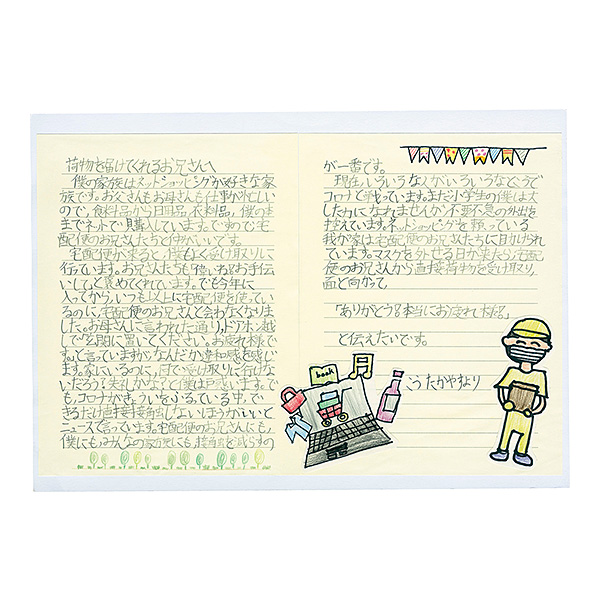 荷物を届けてくれるお兄さんへ
僕の家族はネットショッピングが好きな家
族です。お父さんもお母さんも仕事が忙しい
ので、食料品から日用品、衣料品、僕のま
でネットで購入しています。ですので宅
配便のお兄さんたちと仲がいいです。
宅配便が来ると、僕もよく受け取りに
行っています。お兄さんたちも偉いね、お手伝
いしてと褒めてくれています。でも今年に
入ってから、いつも以上に宅配便を使ってい
るのに、宅配便のお兄さんと会わなくなりま
した。お母さんに言われた通り、ドアホン越
しで「玄関に置いてください。お疲れ様で
す。」と言っていますが、なんだか違和感を感じ
ます。家にいるのに、目で受け取りに行けない
だろう?失礼かな?と僕は戸惑います。で
も、コロナがきょういをふるっている中、で
きるだけ直接接触しないほうがいいと
ニュースで言っています。宅配便のお兄さんにも、
僕にもみんなの家族にも接触を減らすの
が一番です。
現在、いろいろな人がいろいろなところで
コロナと戦っています。まだ小学生の僕は大
した力になれませんが、不要不急の外出を
控えています。ネットショッピングを頼っている
我が家は宅配便のお兄さんたちに助けられ
ています。マスクを外せる日が来たら、宅配
便のお兄さんから直接荷物を受け取り、
面と向かって
「ありがとう!本当にお疲れ様!」
と伝えたいです。
こうたかやすより
book